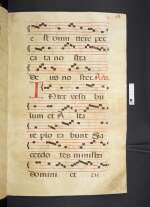 e st dimittere pec
cata no stra
de us no ster
Inter vesti bu
lum et Al ta
re plo ra bunt Sa
cerdo tes ministri
Domini et di